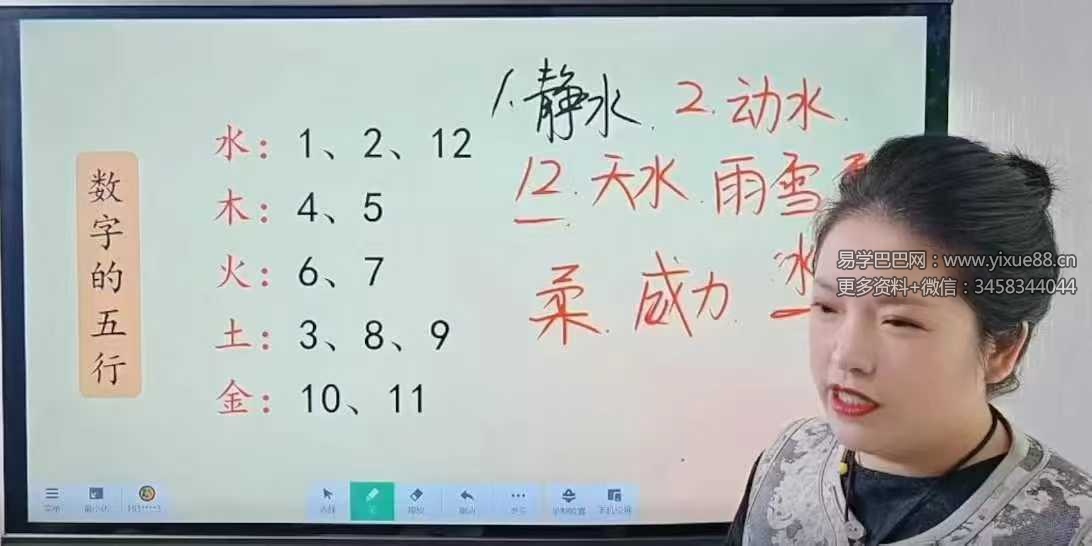 数字的五行
水：1、2、12
木：4、5
火：6、7
土：3、8、9
金：10、11
1.静水. 2.动水.
12.天水 雨雪
柔. 威力. 冰
易学巴巴网：www.yixue88.cn
更多资料+微信：3458344044